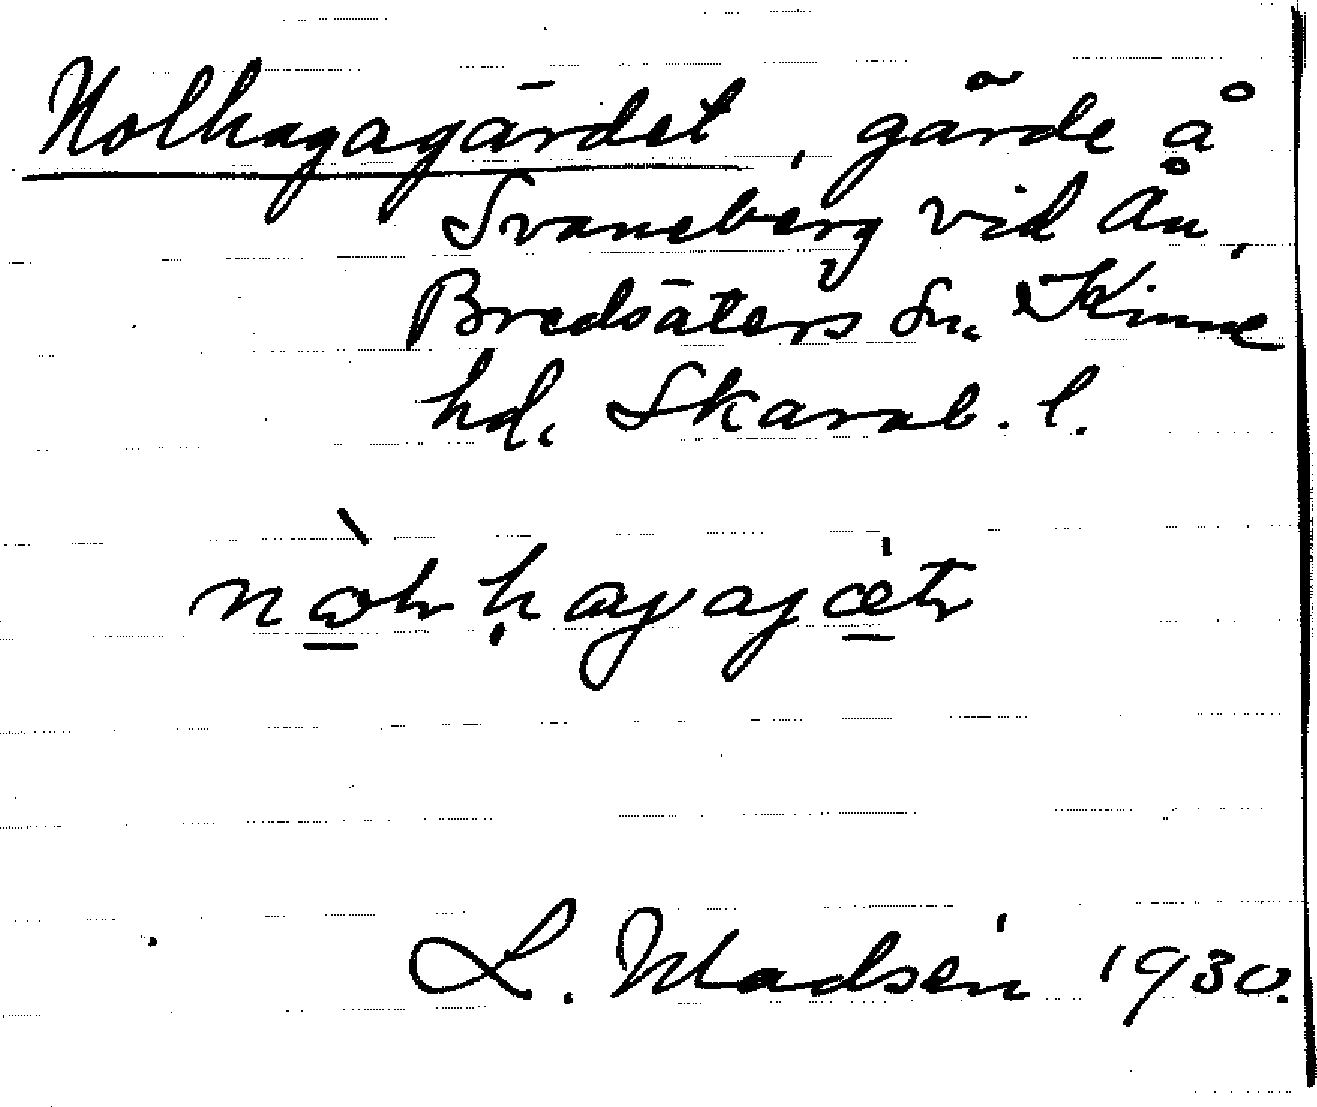 Nolhagagärdet, gärde å
Svaneberg vid Ån,
Bredsäters sn. Kinne
hd. Skarab. l.
L. Madsén 1930.